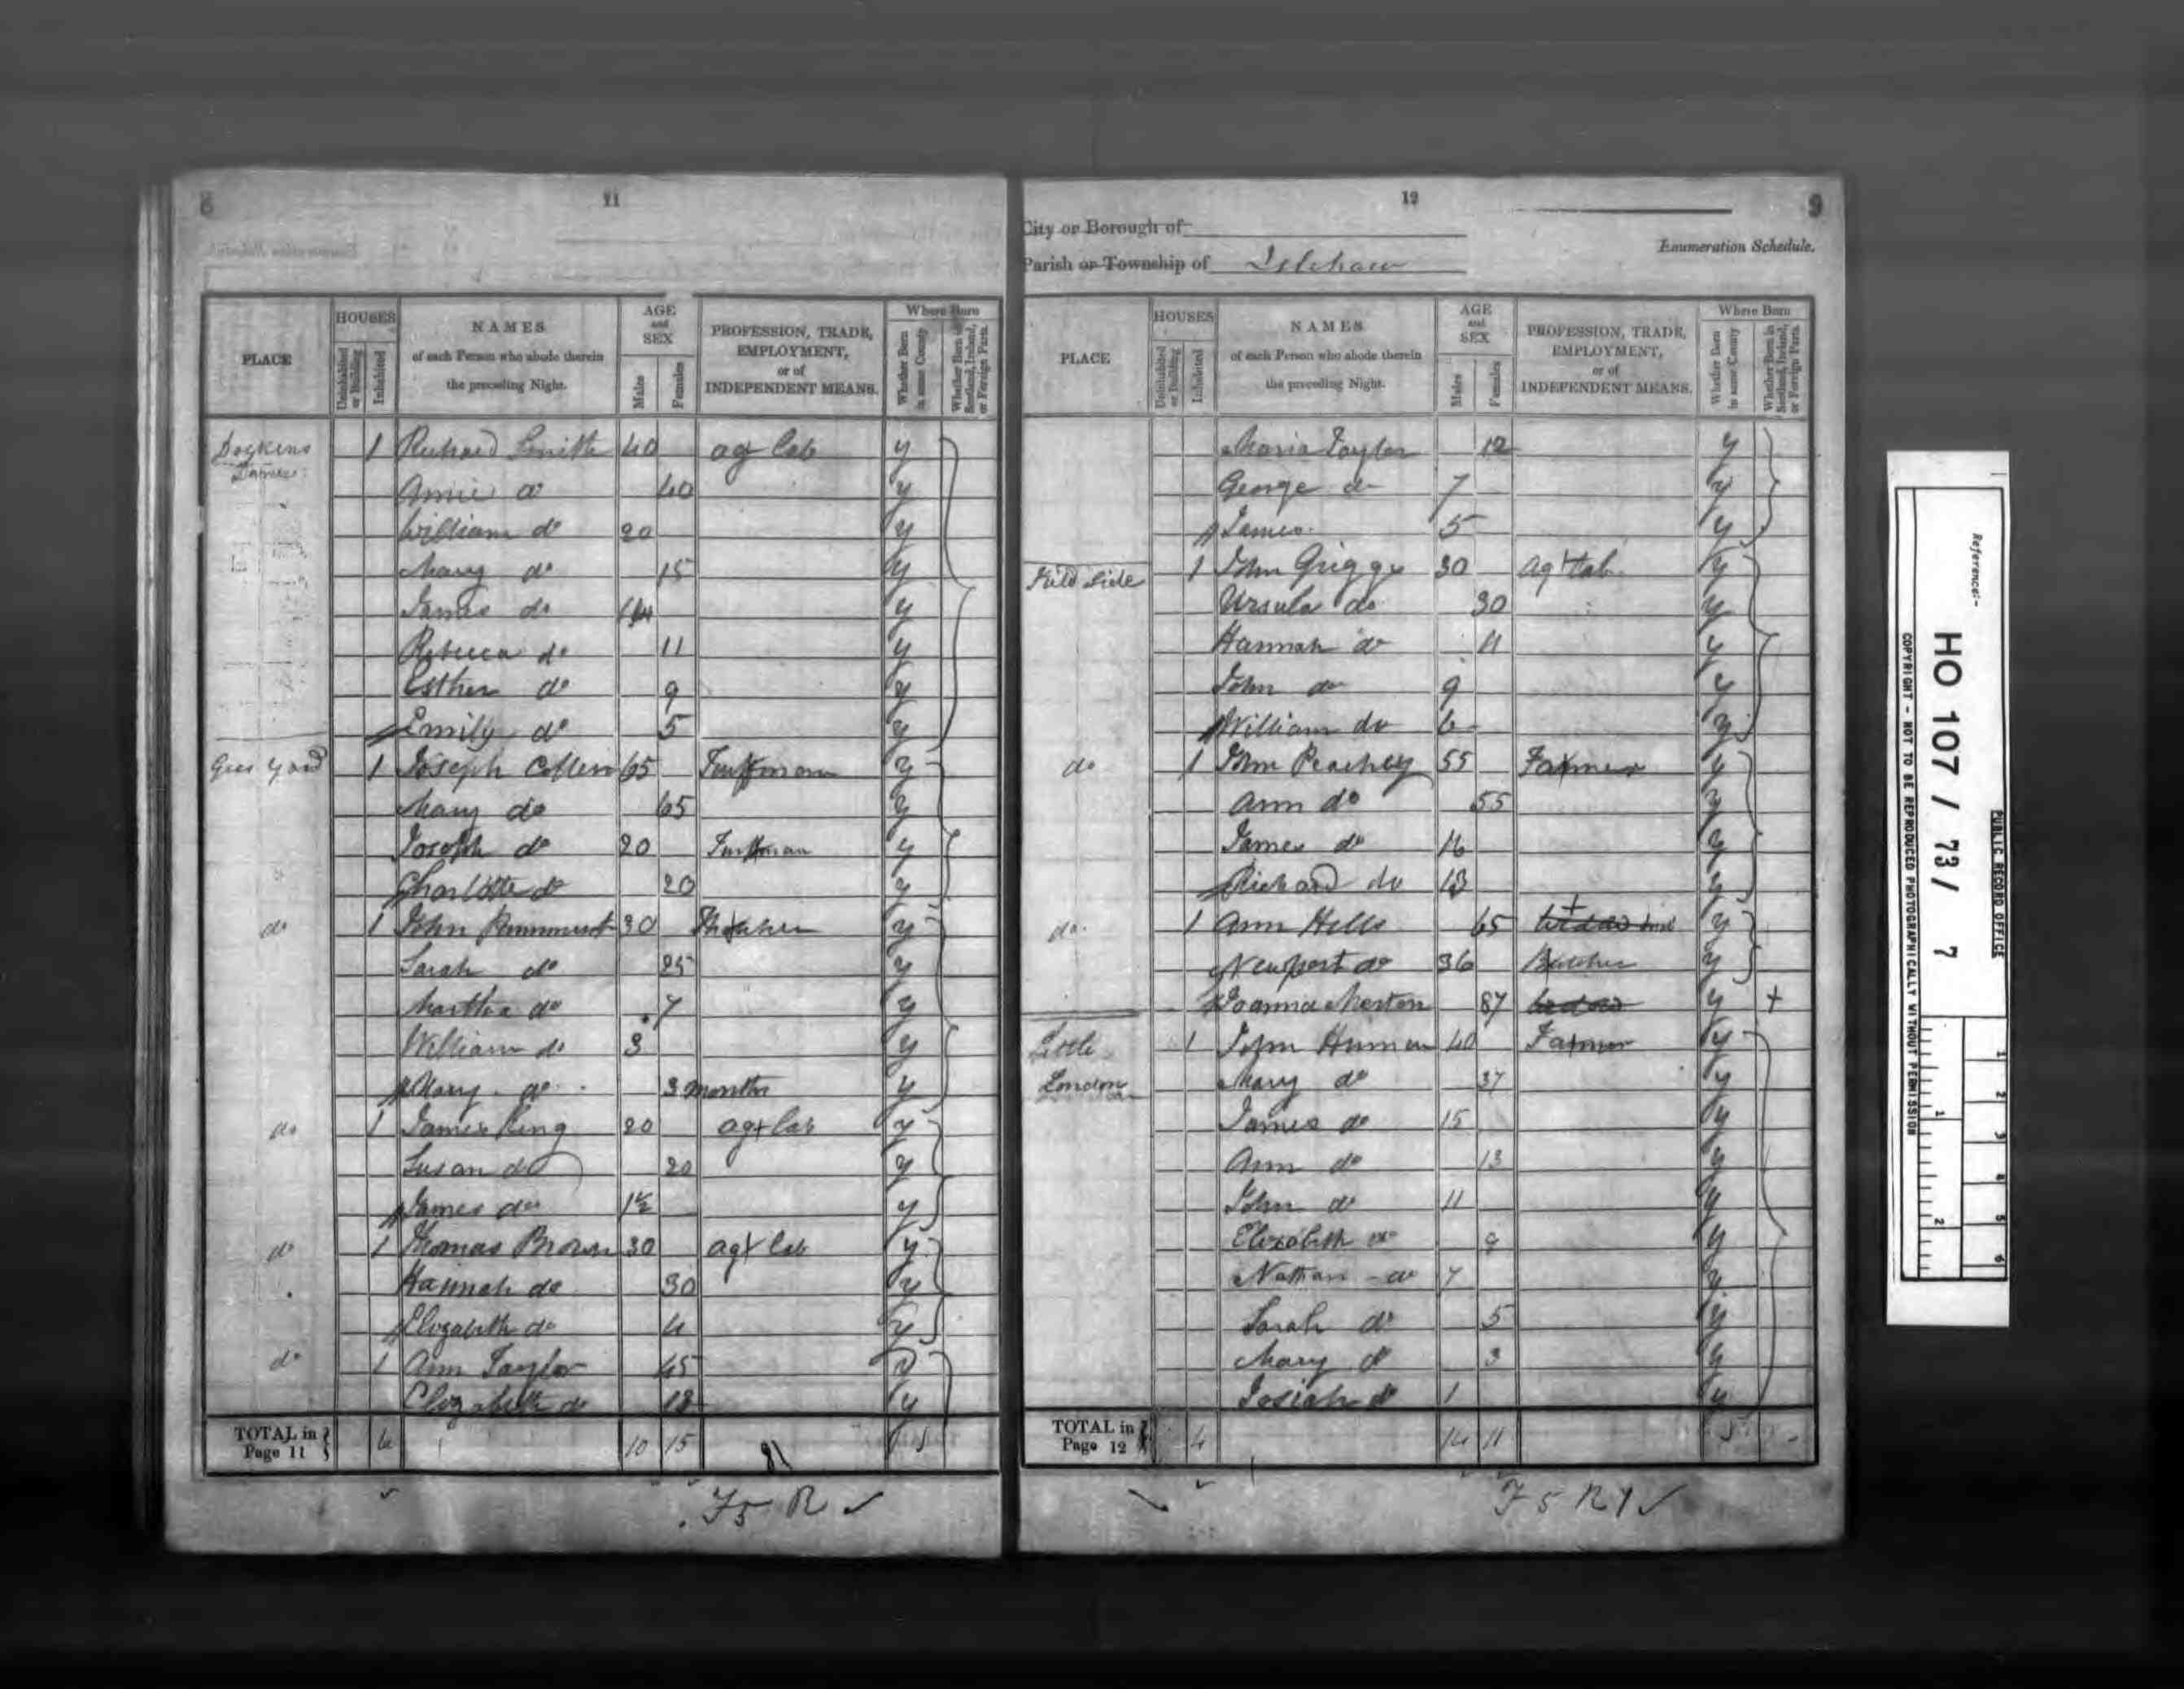 11
PLACE
HOUSES
Uninhabited or Building
Inhabited
NAMES
of each Person who abode therein
the preceding Night.
AGE
and
SEX
Males
Females
PROFESSION, TRADE,
EMPLOYMENT,
or of
INDEPENDENT MEANS.
Where Born
Whether Born in same County
Whether Born in Scotland, Ireland, or Foreign Parts.
1 Richard Smith 40 ag lab y
Annie do 40 y
William do 20 y
Mary do 15 y
James do 14 y
Rebecca do 11 y
Esther do 9 y
Emily do 5 y
Yard 1 Joseph 65 y
Mary do 65 y
Joseph do 20 y
Charlotte do 20 y
do 1 John 30 y
Sarah do 25 y
Martha do 7 y
William do 3 y
Mary do 3 months y
do 1 James King 20 ag lab y
Susan do 20 y
James do 1½ y
do 1 Thomas Brown 30 ag lab y
Hannah do 30 y
Elizabeth do 4 y
do 1 Ann Taylor 45
Elizabeth do 18 y
TOTAL in
Page 11 6 10 15
F5 R
12 9
City or Borough of
Enumeration Schedule.
Parish or Township of Isleham
PLACE
HOUSES
Uninhabited or Building
Inhabited
NAMES
of each Person who abode therein
the preceding Night.
AGE
and
SEX
Males
Females
PROFESSION, TRADE,
EMPLOYMENT,
or of
INDEPENDENT MEANS.
Where Born
Whether Born in same County
Whether Born in Scotland, Ireland, or Foreign Parts.
Maria Taylor 12 y
George do 7 y
James 5 y
Field Side 1 John Griggs 30 ag lab y
Ursula do 30 y
Hannah do 11 y
John do 9 y
William do 6 y
do 1 John Peachey 55 Farmer y
Ann do 55 y
James do 16 y
Richard do 13 y
do 1 Ann Hills 65 y
Newport do 36 Butcher y
Joanna 87 y
Little 1 John Human 40 Farmer y
London Mary do 37 y
James do 15 y
Ann do 13 y
John do 11 y
Elizabeth do 9 y
Nathan do 7 y
Sarah do 5 y
Mary do 3 y
Josiah do 1 y
TOTAL in
Page 12 4 14 11
F 5 R 1
Reference:-
HO 107 / 73 / 7
PUBLIC RECORD OFFICE
COPYRIGHT - NOT TO BE REPRODUCED PHOTOGRAPHICALLY WITHOUT PERMISSION
1 2
1 2 3 4 5 6